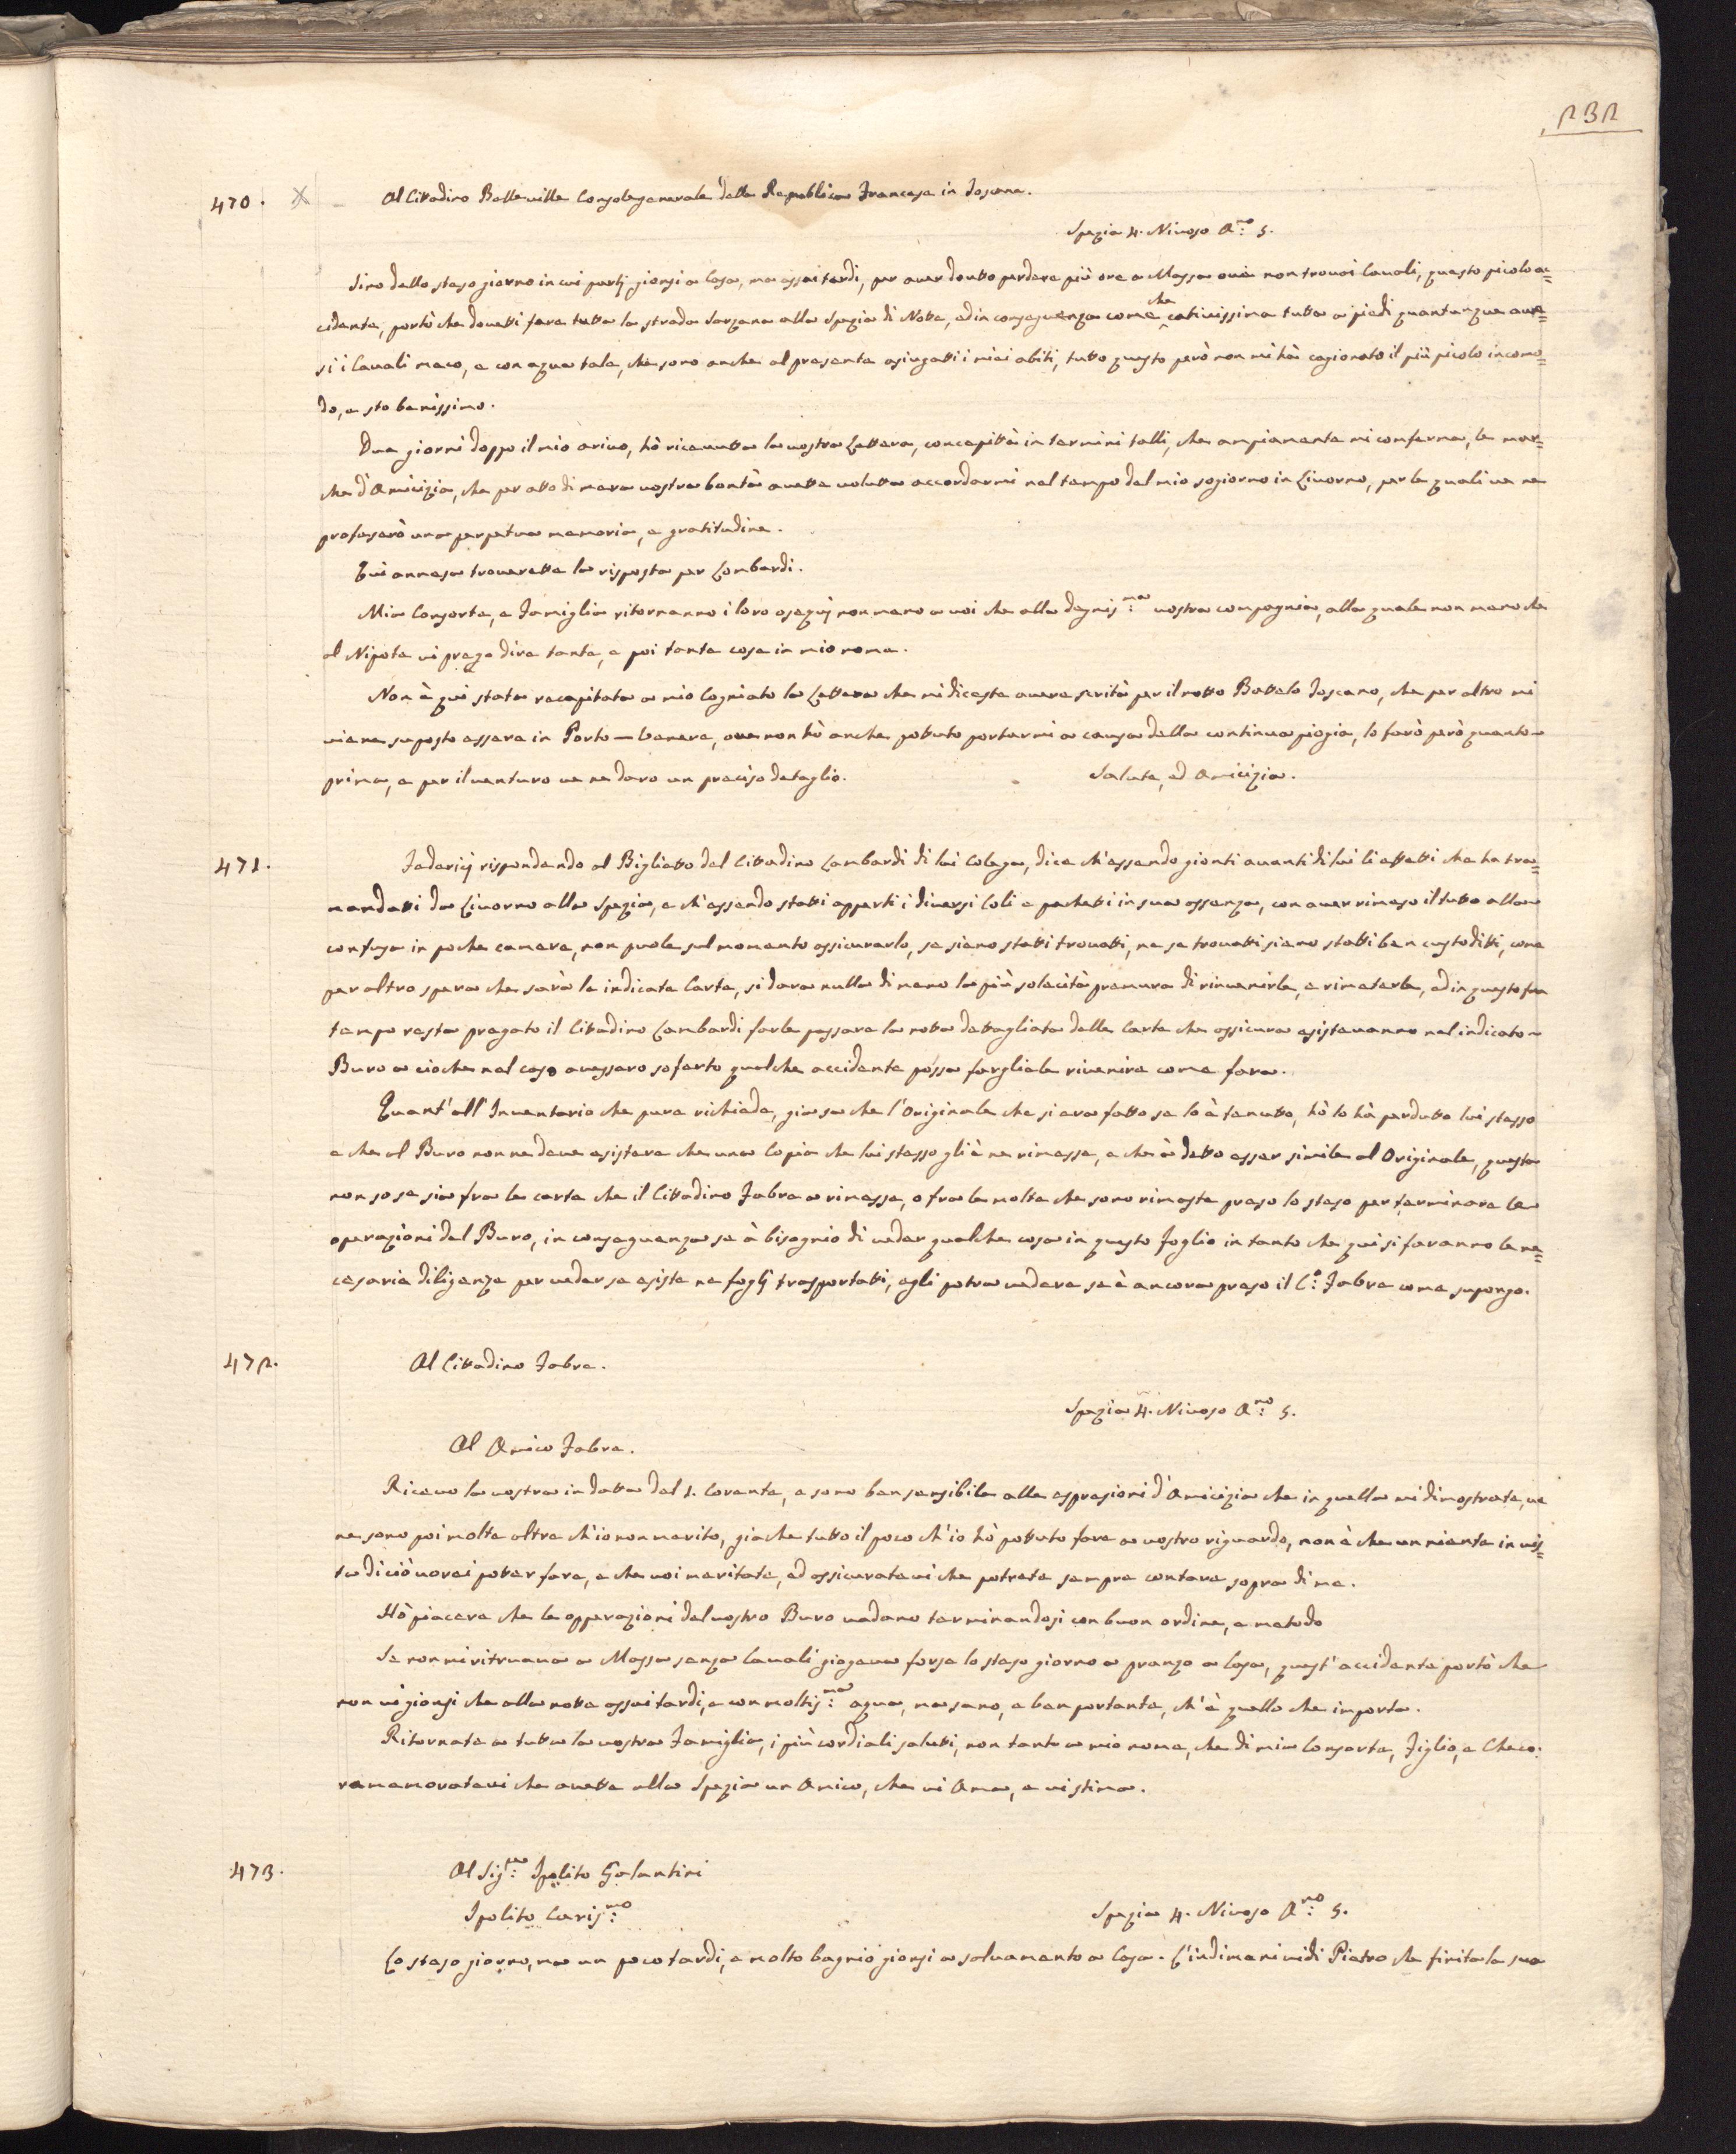 232
470. Al Cittadino Belleville Console generale della Republica Francese in Toscana.
Spezia 4. Nivoso A.no 5.
Sino dello steso giorno in cui partj giorsi a Casa, ma assai tardi, per aver doutto perdere più ore a Massa ove non trovai Cavali, questo picolo ac=
cidente, portò che dovetti fare tutta la strada Sarzana alla Spezia di Notte, ed in conseguenza come che cativissima tutta a piedi quantunque ave=
si i Cavali meco, e con aqua tale, che sono anche al presente asiugatti i miei abiti, tutto questo però non mi hà cagionato il più picolo incomo=
do, e sto benissimo.
Due giorni doppo il mio arivo, hò ricevutta la vostra Lettera, concepittà in termini talli, che ampiamente mi conferma, le mar=
che d'Amicizia, che per atto di mera vostra bontà avette volutta accordarmi nel tempo del mio sogiorno in Livorno, per le quali ve ne
profeserò una perpetua memoria, e gratitudine.
Qui annesa troverette la risposta per Lombardi.
Mia Consorte, e Famiglia ritornanno i loro osequj non meno a voi che alla degnis:ma vostra compagnia, alla quale non meno che
al Nipote vi prego dire tante, e poi tante cose in mio nome.
Non è qui stata recapitata a mio Cogniato la Lettera che mi diceste avere scrità per il notto Battelo Toscano, che per altro mi
viene suposto essere in Porto-Venere, ove non hò anche pottuto portarmi a causa della continua piogia, lo farò però quanto
prima, e per il venturo ve ne daro un preciso detaglio. Salute, ed Amicizia.
471. Federicj rispondendo al Biglietto del Cittadino Lombardi di lui Colega, dice ch'essendo gionti avanti di lui li effetti che ha tra=
mandatti da Livorno alla Spezia, e ch'essendo statti apperti i diversi Coli e pachetti in sua assenza, con aver rimeso il tutto alla
confusa in poche camere, non puole sul momento assicurarlo, se siano statti trovatti, ne se trovatti siano statti ben custoditti, come
per altro spera che sarà le indicate Carte, si dara nulla di meno la più solecità premura di rinvenirle, e rimeterle, ed in questo fra
tempo resta pregato il Cittadino Lombardi farle passare la notta dettagliata delle Carte che assicura esistevanno nel indicato
Buro a cioche nel caso avessero soferto qualche accidente possa fargliele rivenire come fara.
Quant'all'Inventario che pure richiede, gia sa che l'Originale che si era fatto se lo à tenutto, hò lo hà perdutto lui stesso
e che al Buro non ne deve esistere che una Copia che lui stesso gli è ne rimesse, e che à detto esser simile al Originale, questa
non so se sia fra le carte che il Cittadino Fabre a rimesse, o fra le molte che sono rimaste preso lo steso per terminare le
operazioni del Buro, in conseguenza se à bisognio di veder qualche cosa in questo foglio in tanto che qui si faranno le ne=
cesarie diligenze per veder se esiste ne foglj trasportatti, egli potra vedere se è ancora preso il C:o Fabre come supongo.
472. Al Cittadino Fabre.
Spezia 4. Nivoso A.no 5.
Al Amico Fabre.
Ricevo la vostra in datta del 1. Corente, e sono ben sensibile alle espresioni d'Amicizia che in quella mi dimostrate, ve
ne sono poi molte oltre ch'io non merito, giache tutto il poco ch'io hò pottuto fare a vostro riguardo, non è che un niente in vis=
ta di ciò vorei poter fare, e che voi meritate, ed assicuratevi che potrete sempre contare sopra di me.
Hò piacere che le opperazioni del vostro Buro vadano terminandosi con buon ordine, e metodo
Se non mi ritruava a Massa senza Cavali giogeva forse lo steso giorno a pranzo a Casa, quest'accidente portò che
non vi giorsi che alla notte assai tardi, e con moltis:ma aqua, ma sano, e ben portante, ch'è quello che importa.
Ritornate a tutta la vostra Famiglia, i più cordiali salutti, non tanto a mio nome, che di mia Consorte, Figlio, e Checo.
ramemoratevi che avette alla Spezia un Amico, che vi Ama, e vi stima.
473. Al Sig:re Ipolito Galantini
Ipolito Caris:mo
Spezia 4. Nivoso A:no 5.
Lo steso giorno, ma un poco tardi, e molto bagnio giorsi a salvamento a Casa. L'indimeni vidi Pietro che finita la sua